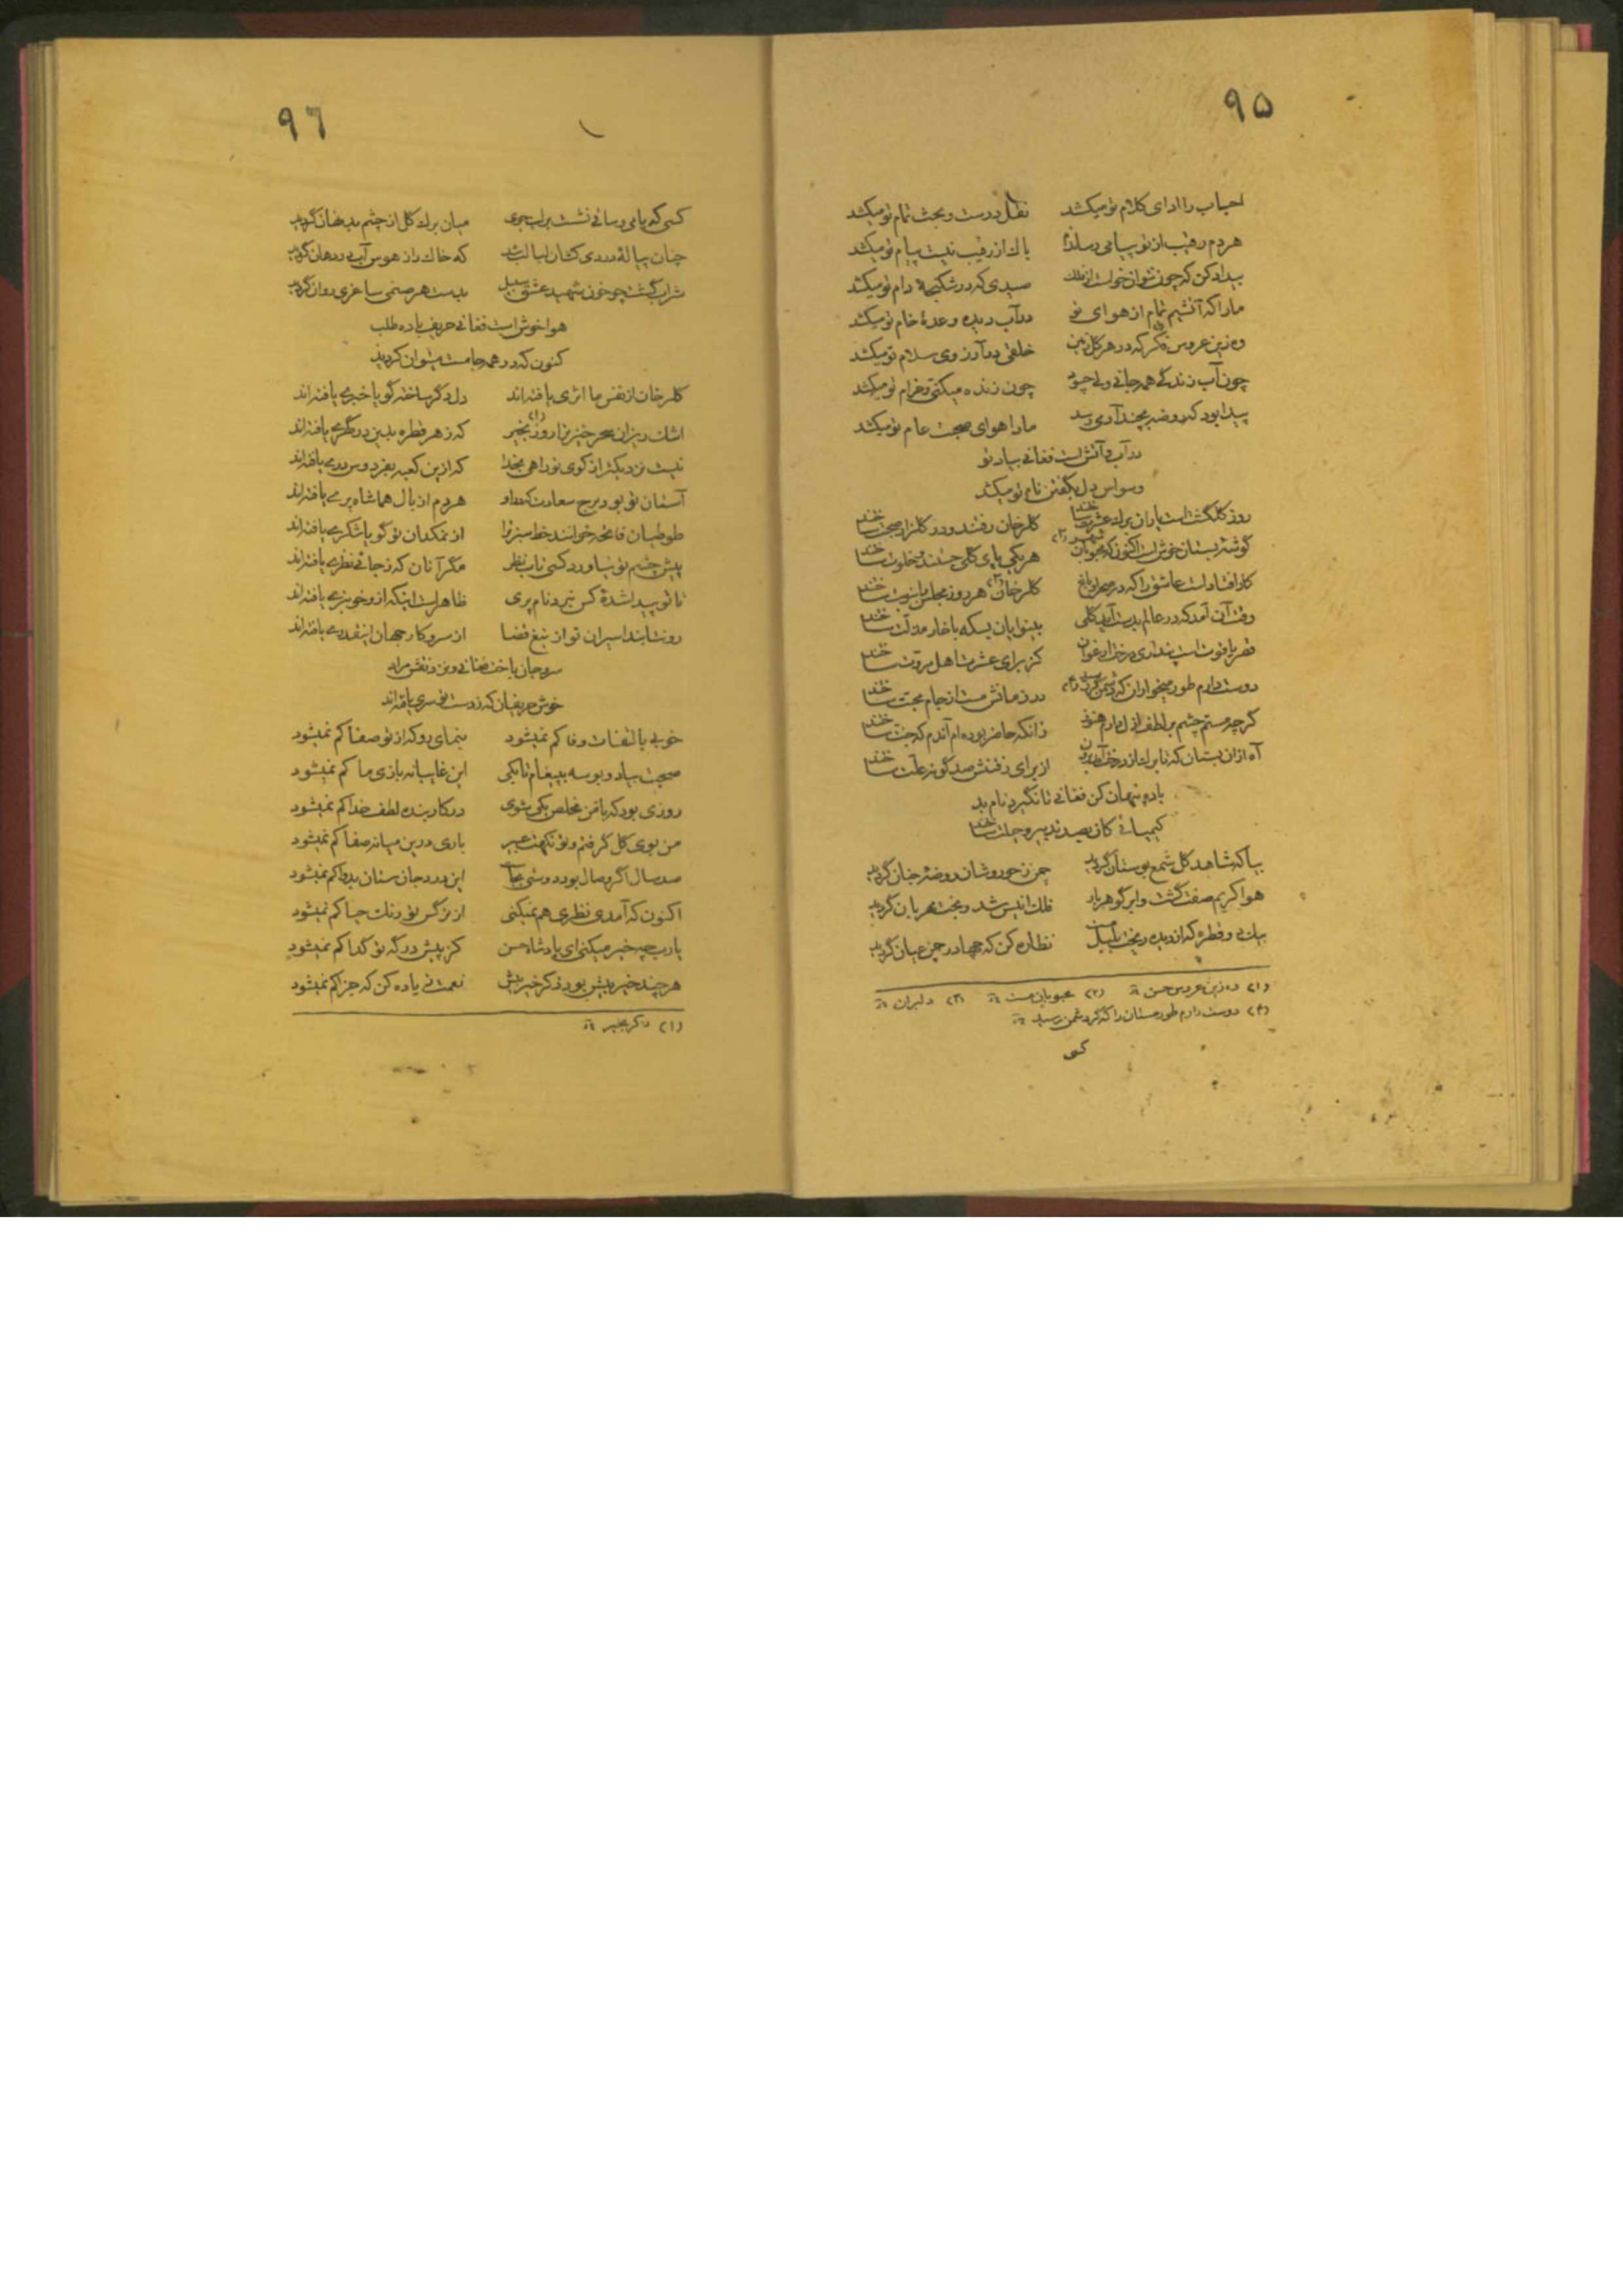 ۹۵
احباب را ادای کلام تو میکشد نقل درست و بحث تمام تو میکشد
هردم رقیب از تو پیامی رساندم باک از رقیب نیست پیام تو میکشد
بیداد کن که چون تو از خواست صیدی که در شکنجهٔ دام تو میکشد
ما را که آتشیم تمام از هوای تو در آب دیده وعدهٔ خام تو میکشد
وه زین عروس فکر که در هر گل زمین خلقی در آرزوی سلام تو میکشد
چون آب زندگی همه جانی ولی چه سود چون زنده میکنی و خرام تو میکشد
پیدا بود که روضه بچند آدمی رسد ما را هوای صحبت عام تو میکشد
در آب و آتش است فغانی بیاد تو
وسواس دل بگفتن نام تو میکشد
روز گلگشت است یاران برگ عشرت ساختند گلرخان رفتند و در گلزار صحبت ساختند
گوشهٔ بستان خوش است اکنون که محبوبان هر یکی پای گلی جستند و خلوت ساختند
کار افتادست عاشق را که در صحن باغ گلرخان هر روز مجلس را بنوبت ساختند
وقت آن آمد که در عالم بدست آید گلی بینوایان بسکه با خار مذلت ساختند
قصر یاقوت است پنداری درخت ارغوان کز برای عشرت اهل مروت ساختند
دوست دارم طور میخواران که دشمن در زمانش مست از جام محبت ساختند
گرچه مستم چشم بر لطف ازل دارم هنوز زانکه حاضر بوده‌ام آندم که جنت ساختند
آه از آن بستان که تا برگ از درخت آمد برون از برای رفتنش صد گونه علت ساختند
باده پنهان کن فغانی تا نگیرد نام بد
کیمیائی کان بصد تدبیر و حیلت ساختند
بیا که شاهد گل شمع بوستان گردید چمن ز حوروشان روضهٔ جنان گردید
هوا کریم صفت گشت و ابر گوهربار فلک انیس شد و بخت مهربان گردید
بیک دو قطره که از دیده ریخت بلبل مست نظاره کن که چها در چمن عیان گردید
(۱) ده زین عروس حسن (۲) محبوبان مست (۳) دلبران
(۴) دوست دارم طور مستان را که گر دشمن رسید
کسی
۹٦
کسی که با می و ساقی نشست بر لب جوی میان برگ گل از چشم بد نهان گردید
چنان پیالهٔ دردی کشان لبالب شد که خاک را ز هوس آب در دهان گردید
شراب گشت چو خون شهید عشق سبیل بدست هر صنمی ساغری روان گردید
هوا خوش است فغانی حریف باده طلب
کنون که در همه جا مست میتوان گردید
گلرخان از نفس ما اثری یافته‌اند دل دگر ساخته گویا خبری یافته‌اند
اشک ریزان سحرخیز ترا روز بخیر که ز هر قطره بدین در گهری یافته‌اند
نیست نزدیکتر از کوی تو راهی بخدا که ازین کعبه بفردوس دری یافته‌اند
آستان تو بود برج سعادت که درو هردم از بال هما شاه پری یافته‌اند
طوطیان فاتحه خوانند خط سبز ترا از نمکدان تو گویا شکری یافته‌اند
پیش چشم تو نیاورد کسی تاب نظر مگر آنان که ز جائی نظری یافته‌اند
تا تو پیدا شدهٔ کس نبرد نام پری ظاهر است اینکه از و خوبتری یافته‌اند
رو نتابند اسیران تو از تیغ قضا از سر و کار جهان اینقدری یافته‌اند
سر و جان باخت فغانی و بزد نقش مراد
خوش حریفیان که ز دست تو سری یافته‌اند
خوبی بالتفات و وفا کم نمیشود بنمای رو که از تو صفا کم نمیشود
صحبت بیاد و بوسه به پیغام تا بکی این غایبانه بازی ما کم نمیشود
روزی بود که با من مخلص یکی شوی در کار بنده لطف خدا کم نمیشود
من بوی گل گرفتم و تو نکهت عبیر باری درین میانه صفا کم نمیشود
صد سال اگر وصال بود در دوستی بجاست این درد جان ستان بدوا کم نمیشود
اکنون که آمدی نظری هم نمیکنی از نرگس تو رنگ حیا کم نمیشود
یارب چه خیر میکنی ای پادشاه حسن کز پیش درگه تو گدا کم نمیشود
هر چند خیر بیش بود ذکر خیر بیش نعمت زیاده کن که جزا کم نمیشود
(۱) ذکر بخیر